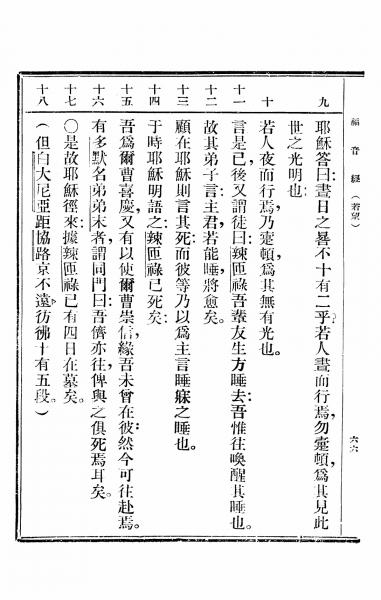 福音經（若望）
六六
九
耶穌答曰、晝日之晷不十有二乎、若人晝而行焉、勿躓頓、爲其見此
世之光明也。
十
若人夜而行焉、乃躓頓、爲其無有光也。
十一
言是已、後又謂徒曰、辣匝祿吾輩友生方睡去、吾惟往喚醒其睡也。
十二
故其弟子言、主君、若能睡、將愈矣。
十三
顧在耶穌則言其死、而彼等乃以爲主言睡寐之睡也。
十四
于時耶穌明語之、辣匝祿已死矣。
十五
吾爲爾曹喜慶、又有以使爾曹崇信、緣吾未曾在彼、然今可往赴焉。
十六
有多默名弟弟末者、謂同門曰、吾儕亦往、俾與之俱死焉耳矣。
十七
〇是故耶穌徑來、據辣匝祿已有四日在墓矣。
十八
（但白大尼亞距協路京不遠、彷彿十有五段。）